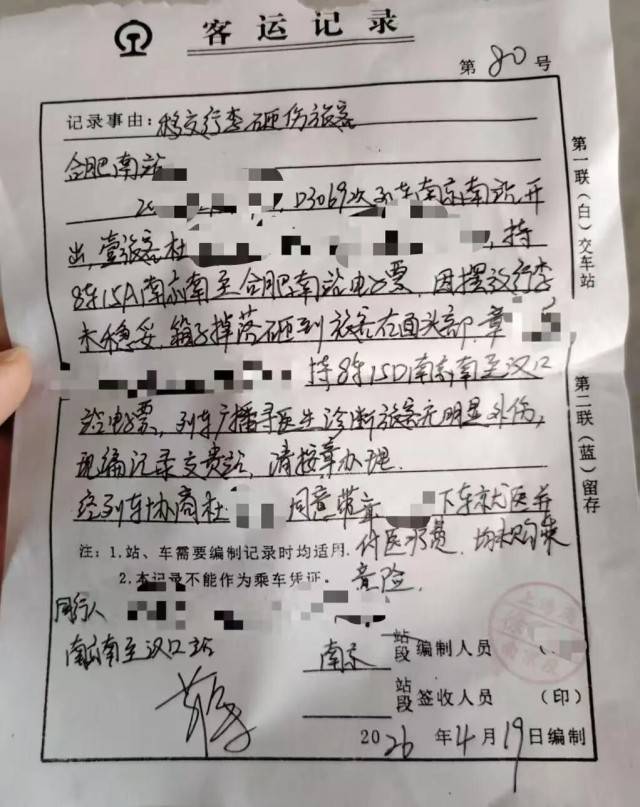 客运记录
第80号
记录事由：移交行李砸伤旅客
合肥南站
20 ，D3069次列车南京南站开
出，壹旅客杜 ，持
8车15A南京南至合肥南站电子票，因摆放行李
未稳妥，箱子掉落砸到旅客右面头部，章
持8车15D南京南至汉口
站电子票，列车广播寻医生诊断旅客无明显外伤，
现编记录交贵站，请按章办理.
经列车协商杜 同意带章 下车就医并
付医疗费，均未购乘
意险.
注：1.站、车需要编制记录时均适用.
2.本记录不能作为乘车凭证。
同行人
南京南至汉口站
南京 站段 编制人员
站段 签收人员 （印）
2026年4月19日编制
第一联（白）交车站
第二联（蓝）留存